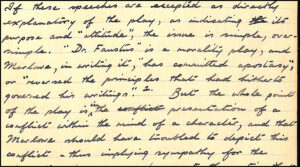 If these speeches are accepted as directly
explanatory of the play, as indicating its
purpose and "attitude", the issue is simple, over-
simple. "Dr. Faustus" is a morality play, and
Marlowe, in writing it, has committed apostasy,
or "reversed the principles that had hitherto
governed his writings" 2. But the whole point
of the play is "the conflict presentation of a
conflict within the mind of a character, and that
Marlowe should have troubled to depict this
conflict – thus implying sympathy for the